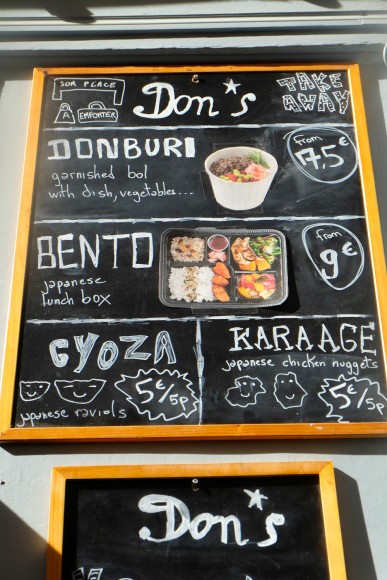 SUR PLACE
A EMPORTER
Don's
TAKE AWAY
DONBURI
garnished bol
with dish, vegetables...
from
7,5€
BENTO
japanese
lunch box
from
9€
GYOZA
5€/5p
japanese raviols
KARAAGE
japanese chicken nuggets
5€/5p
Don's